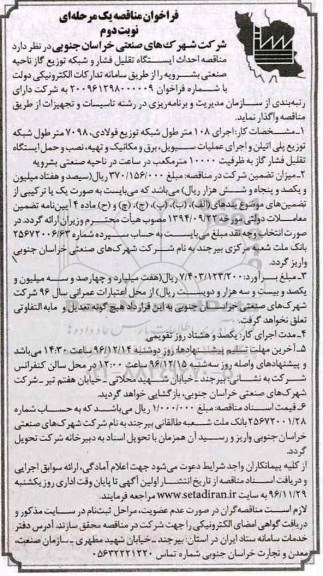 فراخوان مناقصه یک مرحله‌ای
نوبت دوم
شرکت شهرک‌های صنعتی خراسان جنوبی در نظر دارد
مناقصه احداث ایستگاه تقلیل فشار و شبکه توزیع گاز ناحیه
صنعتی بشرویه را از طریق سامانه تدارکات الکترونیکی دولت
با شماره فراخوان ۲۰۰۹۶۱۲۹۸۰۰۰۰۰۹ به شرکت دارای
رتبه‌بندی از سازمان مدیریت و برنامه‌ریزی در رشته تاسیسات و تجهیزات از طریق
مناقصه واگذار نماید.
۱-مشخصات کار: اجرای ۱۰۸ متر طول شبکه توزیع فولادی، ۷۰۹۸ متر طول شبکه
توزیع پلی اتیلن و اجرای عملیات سیویل، برق و مکانیک و تهیه، نصب و حمل ایستگاه
تقلیل فشار گاز به ظرفیت ۱۰۰۰۰ مترمکعب در ساعت در ناحیه صنعتی بشرویه
۲-میزان تضمین شرکت در مناقصه: مبلغ ۳۷۰/۱۵۶/۰۰۰ ریال (سیصد و هفتاد میلیون
و یکصد و پنجاه و شش هزار ریال) می‌باشد که می‌بایست به صورت یک یا ترکیبی از
تضمین‌های موضوع بندهای (الف)، (ب)، (پ)، (ج)، (چ) و (ح) ماده ۴ آیین‌نامه تضمین
معاملات دولتی مورخه ۱۳۹۴/۰۹/۲۲ مصوب هیأت محترم وزیران ارائه گردد. در
صورت انتخاب وجه نقد مبلغ می‌بایست به حساب سپرده شماره ۲۵۶۷۲۰۰۶/۶۳
بانک ملت شعبه مرکزی بیرجند به نام شرکت شهرک‌های صنعتی خراسان جنوبی
واریز گردد.
۳-مبلغ برآورد: ۷/۴۰۳/۱۲۳/۲۰۰ ریال (هفت میلیارد و چهارصد و سه میلیون و
یکصد و بیست و سه هزار و دویست ریال) از محل اعتبارات عمرانی سال ۹۶ شرکت
شهرک‌های صنعتی خراسان جنوبی به این قرارداد هیچ گونه تعدیل و مابه التفاوتی
تعلق نخواهد گرفت.
۴-مدت اجرای کار: یکصد و هشتاد روز تقویمی
۵-آخرین مهلت تسلیم پیشنهادها: روز دوشنبه ۹۶/۱۲/۱۴ ساعت ۱۴:۳۰ می‌باشد
و پیشنهادهای واصله روز سه‌شنبه ۹۶/۱۲/۱۵ ساعت ۱۲:۰۰ در محل سالن کنفرانس
شرکت به نشانی: بیرجند-خیابان شهید محلاتی-خیابان هفتم تیر-شرکت
شهرک‌های صنعتی خراسان جنوبی، بازگشایی خواهد گردید.
۶-قیمت اسناد مناقصه: مبلغ ۱/۰۰۰/۰۰۰ ریال می‌باشد که به حساب شماره
۲۵۶۷۲۰۰۱/۲۸ بانک ملت شعبه طالقانی بیرجند به نام شرکت شهرک‌های صنعتی
خراسان جنوبی واریز و رسید آن همزمان با تحویل اسناد به دبیرخانه شرکت تحویل
گردد.
از کلیه پیمانکاران واجد شرایط دعوت می‌شود جهت اعلام آمادگی، ارائه سوابق اجرایی
و دریافت اسناد مناقصه از تاریخ انتشار اولین آگهی تا پایان وقت اداری روز یکشنبه
۹۶/۱۱/۲۹ به سایت www.setadiran.ir مراجعه فرمایند.
لازم است مناقصه‌گران در صورت عدم عضویت، مراحل ثبت‌نام در سایت مذکور و
دریافت گواهی امضای الکترونیکی را جهت شرکت در مناقصه محقق سازند. آدرس دفتر
خدمات سامانه ستاد ایران در استان: بیرجند-خیابان شهید مطهری-سازمان صنعت،
معدن و تجارت خراسان جنوبی شماره تماس ۰۵۶۳۲۲۲۱۲۲۰